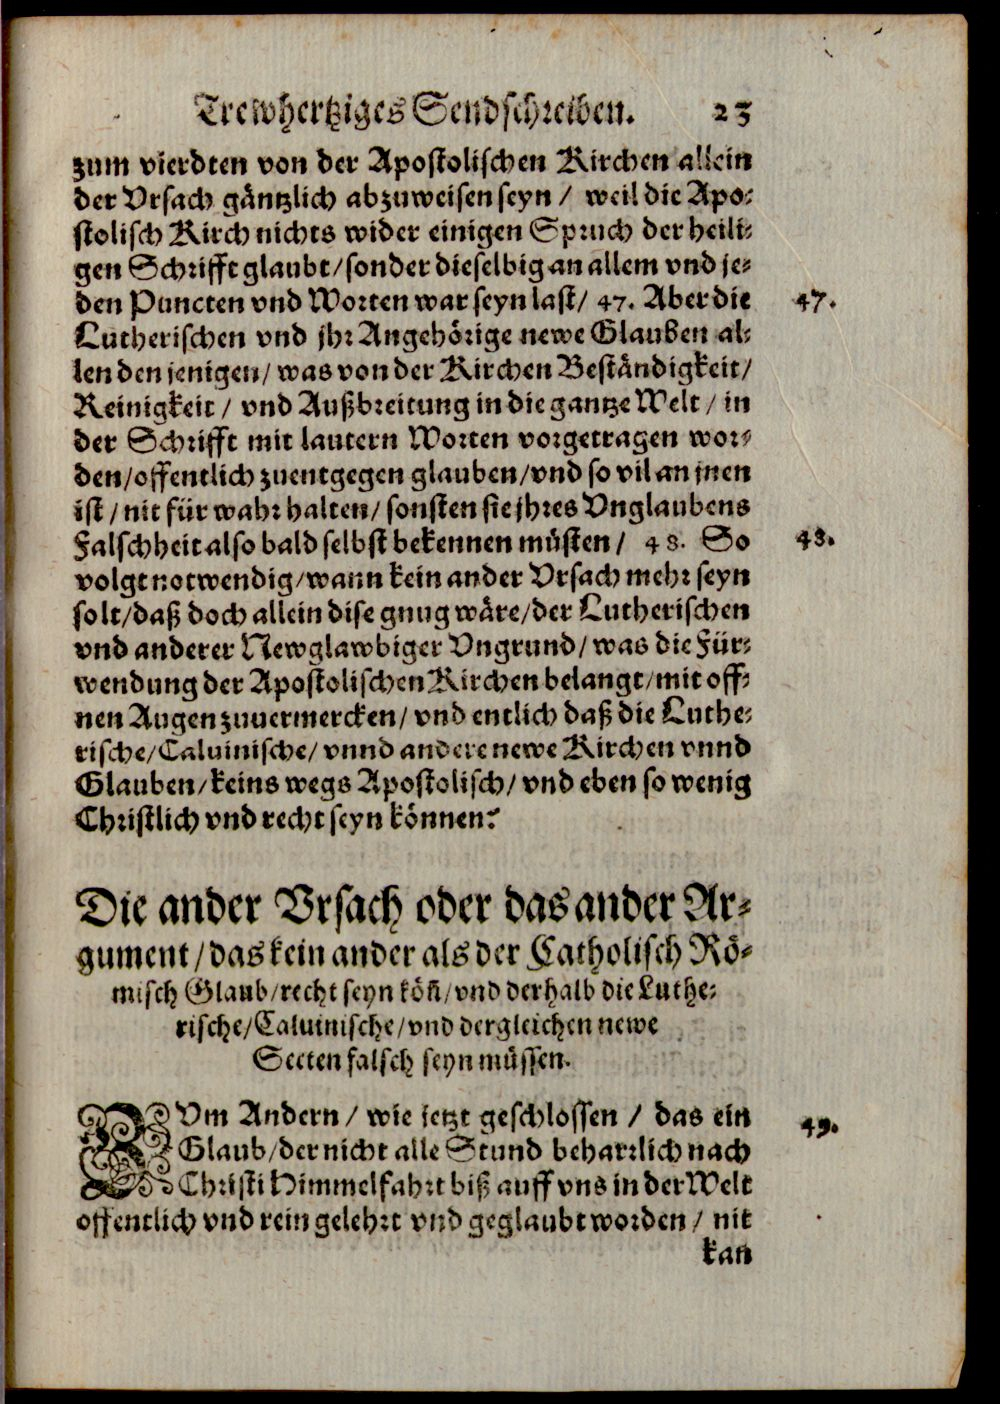 Trewhertziges Sendschreiben. 23
zum vierdten von der Apostolischen Kirchen allein
der Vrsach gäntzlich abzuweisen seyn / weil die Apo-
stolisch Kirch nichts wider einigen Spruch der heili-
gen Schrifft glaubt / sonder dieselbig an allem vnd je-
den Puncten vnd Worten war seyn last / 47. Aber die
47.
Lutherischen vnd jhr Angehörige newe Glauben al-
len den jenigen / was von der Kirchen Beständigkeit /
Reinigkeit / vnd Außbreitung in die gantze Welt / in
der Schrifft mit lautern Worten vorgetragen wor-
den / offentlich zuentgegen glauben / vnd so vil an jnen
ist / nit für wahr halten / sonsten sie jhres Vnglaubens
Falschheit also bald selbst bekennen müsten / 48. So
48.
volgt notwendig / wann kein ander Vrsach mehr seyn
solt / daß doch allein dise gnug wäre / der Lutherischen
vnd anderer Newglawbiger Vngrund / was die Für-
wendung der Apostolischen Kirchen belangt / mit off-
nen Augen zuuermercken / vnd entlich daß die Luthe-
rische / Caluinische / vnnd andere newe Kirchen vnnd
Glauben / keins wegs Apostolisch / vnd eben so wenig
Christlich vnd recht seyn können?
Die ander Vrsach oder das ander Ar-
gument / das kein ander als der Catholisch Rö-
misch Glaub / recht seyn köñ / vnd derhalb die Luthe-
rische / Caluinische / vnd dergleichen newe
Secten falsch seyn müssen.
ZVm Andern / wie jetzt geschlossen / das ein
49.
Glaub / der nicht alle Stund beharrlich nach
Christi Himmelfahrt biß auff vns in der Welt
offentlich vnd rein gelehrt vnd geglaubt worden / nit
kan